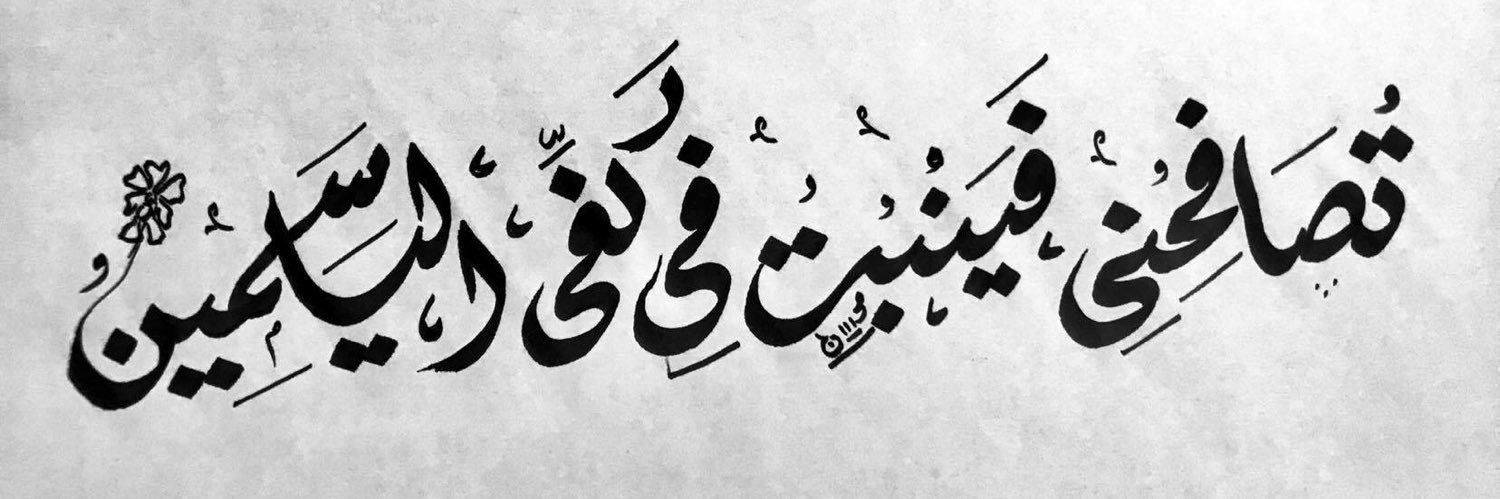 تُصَافِحُنِى فَيَنْبُتُ فِى كَفِّى اليَاسَمِينُ